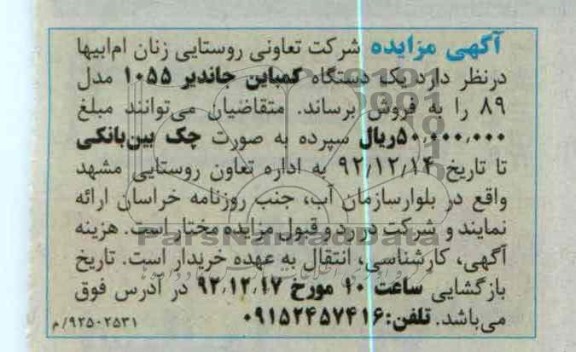 آگهی مزایده شرکت تعاونی روستایی زنان ام‌ابیها
درنظر دارد یک دستگاه کمباین جاندیر ۱۰۵۵ مدل
۸۹ را به فروش برساند. متقاضیان می‌توانند مبلغ
۵۰,۰۰۰,۰۰۰ریال سپرده به صورت چک بین‌بانکی
تا تاریخ ۹۲,۱۲,۱۴ به اداره تعاون روستایی مشهد
واقع در بلوارسازمان آب، جنب روزنامه خراسان ارائه
نمایند و شرکت در رد و قبول مزایده مختار است. هزینه
آگهی، کارشناسی، انتقال به عهده خریدار است. تاریخ
بازگشایی ساعت ۱۰ مورخ ۹۲,۱۲,۱۷ در آدرس فوق
می‌باشد. تلفن:۰۹۱۵۲۴۵۷۴۱۶
۹۲۵۰۲۵۳۱/م
ParsNamadData